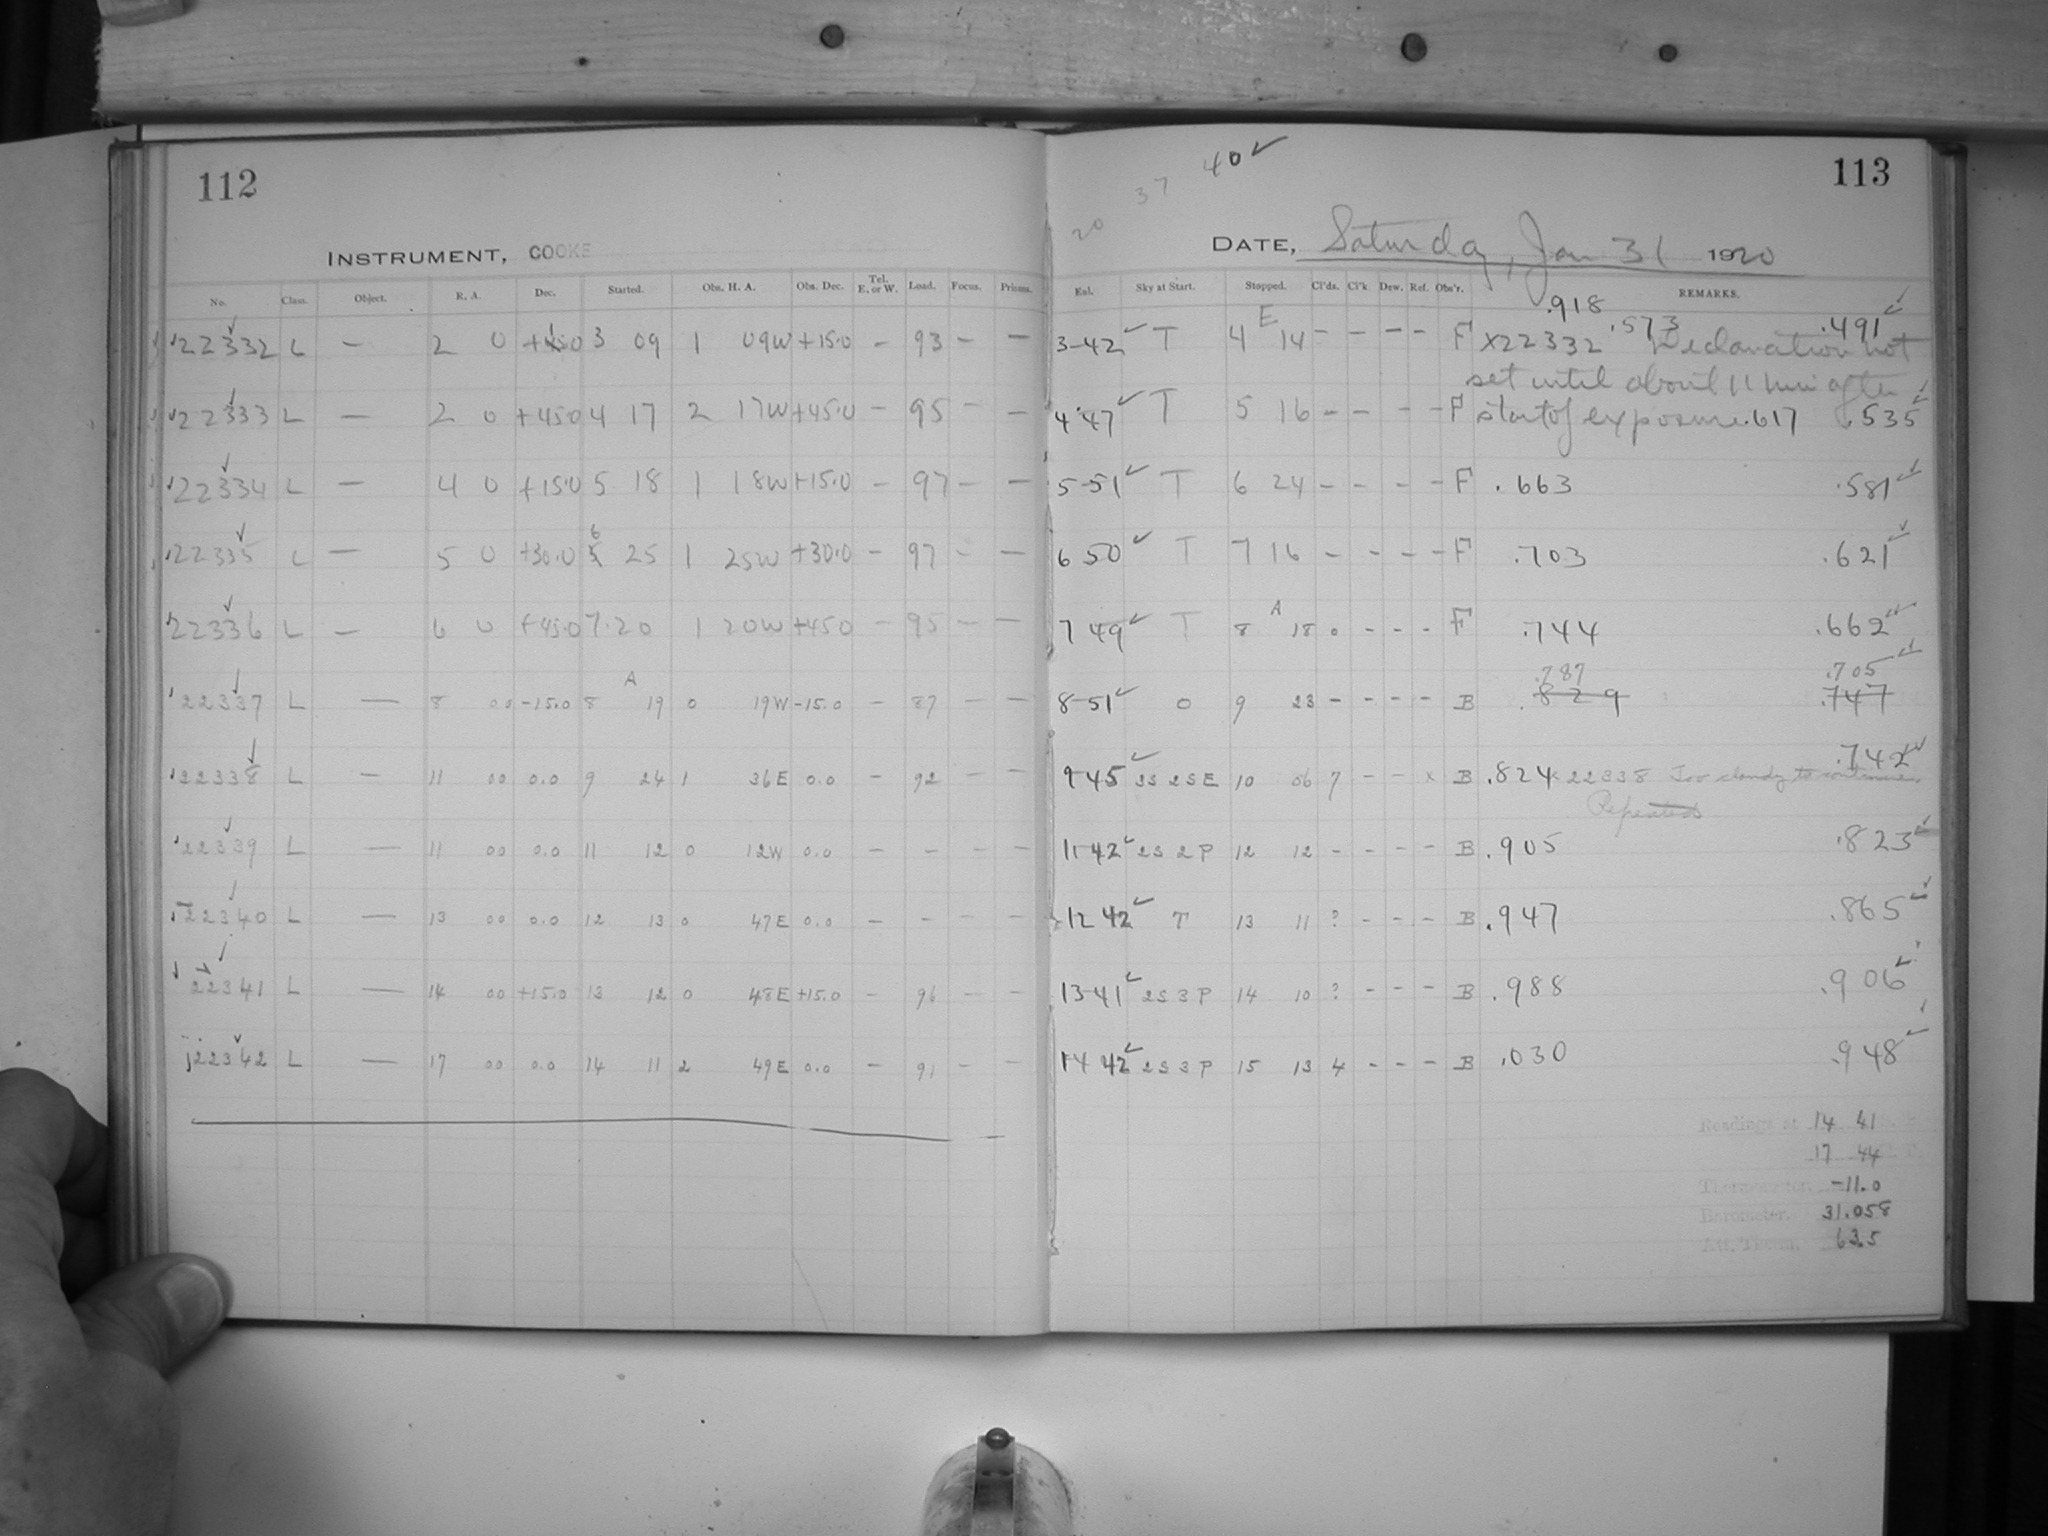 112
INSTRUMENT, COOKE
No. Class. Object. R. A. Dec. Started. Obs. H. A. Obs. Dec. Tel. E. or W. Load. Focus. Prisms.
22332 L — 2 0 +15.0 3 09 1 09W +15.0 – 93 – –
22333 L — 2 0 +45.0 4 17 2 17W +45.0 – 95 – –
22334 L — 4 0 +15.0 5 18 1 18W +15.0 – 97 – –
22335 L — 5 0 +30.0 6 25 1 25W +30.0 – 97 – –
22336 L — 6 0 +45.0 7.20 1 20W +45.0 – 95 – –
A
22337 L — 8 00 -15.0 8 19 0 19W -15.0 – 87 – –
22338 L — 11 00 0.0 9 24 1 36E 0.0 – 92 – –
22339 L — 11 00 0.0 11 12 0 12W 0.0 – – – –
22340 L — 13 00 0.0 12 13 0 47E 0.0 – – – –
22341 L — 14 00 +15.0 13 12 0 48E +15.0 – 96 – –
22342 L — 17 00 0.0 14 11 2 49E 0.0 – 91 – –
20 37 40 ✓
113
DATE, Saturday, Jan 31 1920
Eal. Sky at Start. Stopped. Cl'ds. Cl'k Dew. Ref. Obs'r. REMARKS.
.918
3-42 ✓ T 4 E 14 – – – – F X22332 .573 Declination not .491 ✓
set until about 11 min after
4.47 ✓ T 5 16 – – – – F start of exposure .617 .535 ✓
5-51 ✓ T 6 24 – – – – F .663 .581 ✓
6 50 ✓ T 7 16 – – – – F .703 .621 ✓
7 49 ✓ T 8 A 18 0 – – – F .744 .662 ✓
.787 .705 ✓
8-51 ✓ 0 9 23 – – – – B .829 .747
.742 ✓
9 45 ✓ 2S 2S E 10 06 7 – – x B .824 x 22338 Too cloudy to continue.
Repeated
11-42 ✓ 2S 2P 12 12 – – – – B .905 .823 ✓
12 42 ✓ T 13 11 ? – – – B .947 .865 ✓
13-41 ✓ 2S 3P 14 10 ? – – – B .988 .906 ✓
14 42 ✓ 2S 3P 15 13 4 – – – B .030 .948 ✓
Readings at 14 41
17 44
Thermometer. -11.0
Barometer. 31.058
Att. Therm. 63.5